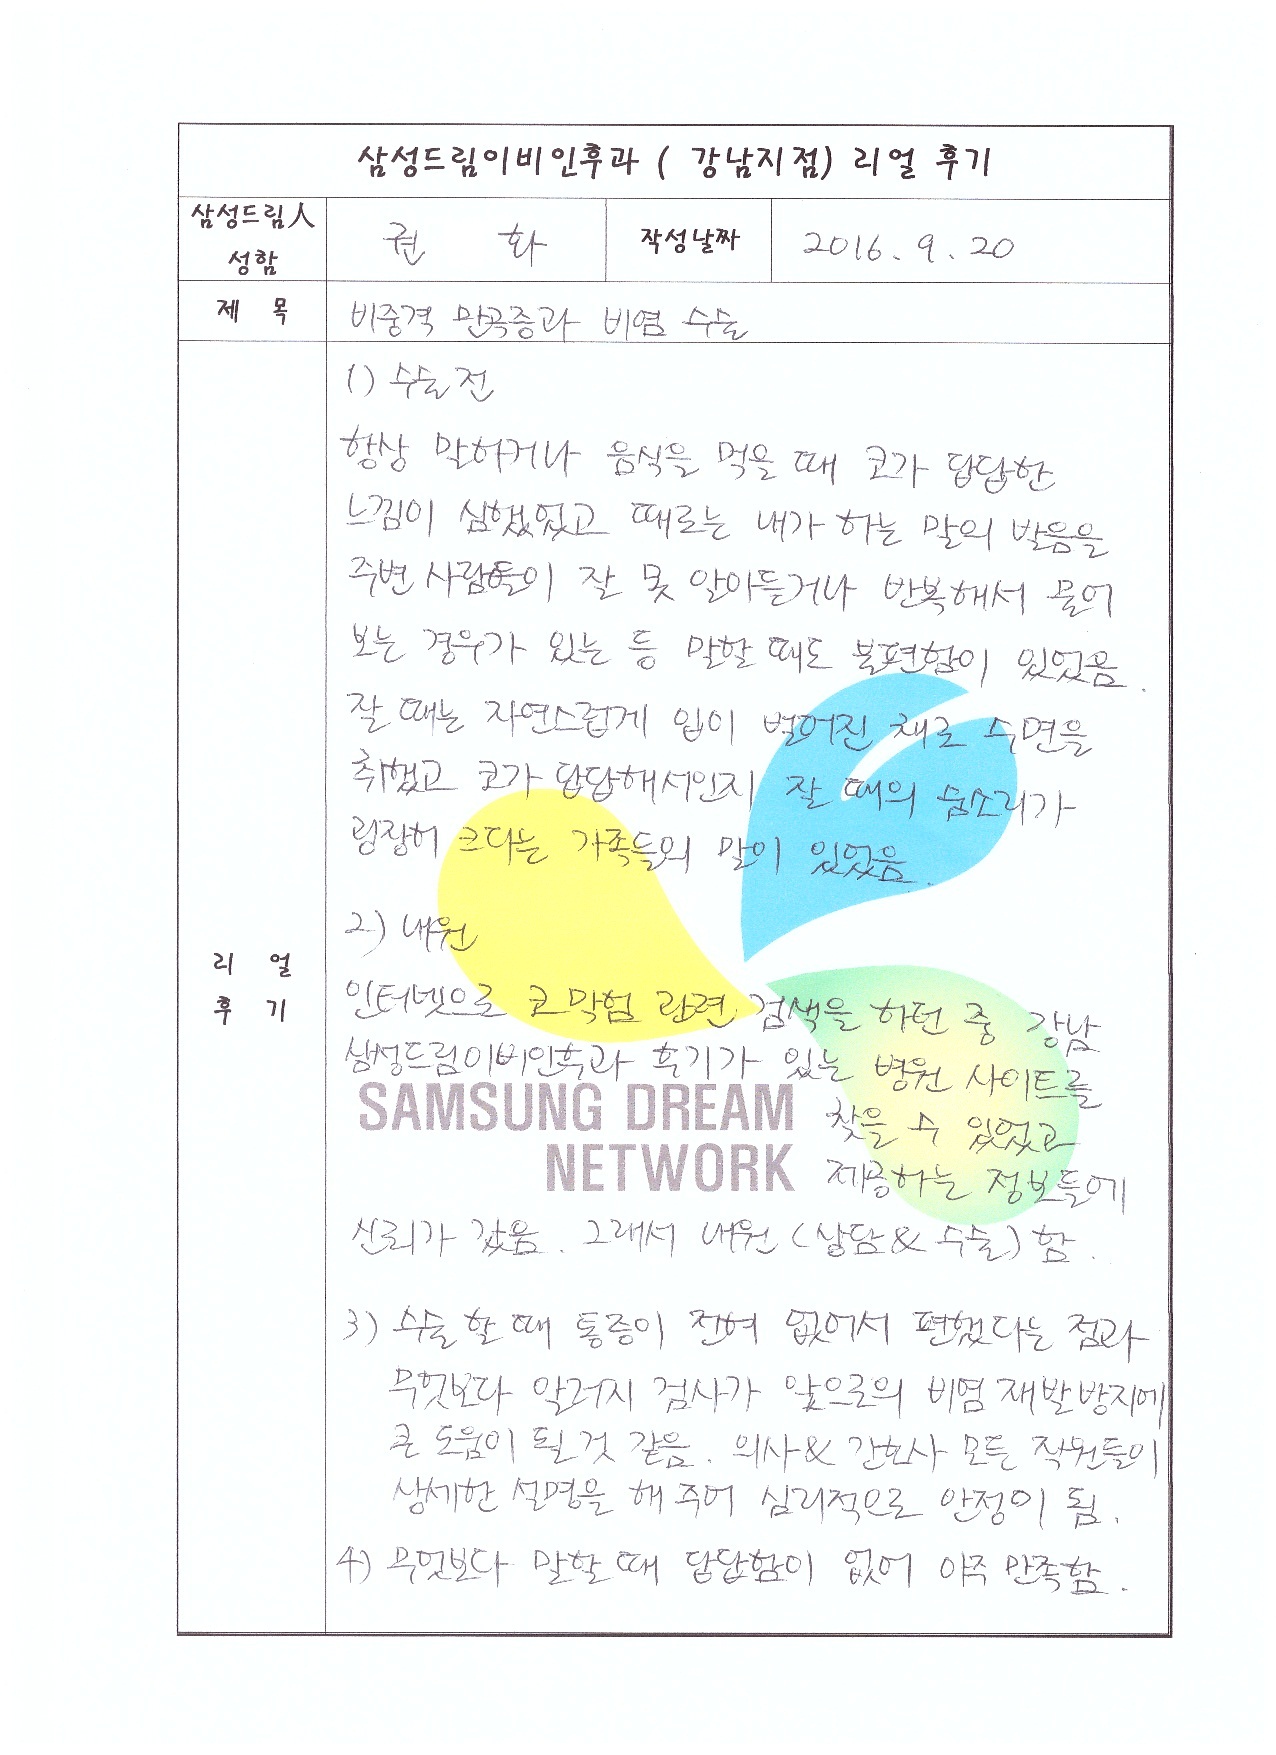 삼성드림이비인후과 ( 강남지점) 리얼 후기
삼성드림人 성함
권 화
작성날짜
2016. 9. 20
제 목
비중격 만곡증과 비염 수술
리 얼 후 기
1) 수술 전
항상 말하거나 음식을 먹을 때 코가 답답한
느낌이 심했었고 때로는 내가 하는 말의 발음을
주변 사람들이 잘 못 알아듣거나 반복해서 물어
보는 경우가 있는 등 말할 때도 불편함이 있었음.
잘 때는 자연스럽게 입이 벌어진 채로 수면을
취했고 코가 답답해서인지 잘 때의 숨소리가
굉장히 크다는 가족들의 말이 있었음.
2) 내원
인터넷으로 코막힘 관련 검색을 하던 중 강남
삼성드림이비인후과 후기가 있는 병원 사이트를
찾을 수 있었고
제공하는 정보들에
SAMSUNG DREAM
NETWORK
신뢰가 갔음. 그래서 내원 (상담 & 수술) 함.
3) 수술 할 때 통증이 전혀 없어서 편했다는 점과
무엇보다 알러지 검사가 앞으로의 비염 재발 방지에
큰 도움이 될 것 같음. 의사 & 간호사 모든 직원들이
상세한 설명을 해 주어 심리적으로 안정이 됨.
4) 무엇보다 말할 때 답답함이 없어 아주 만족함.